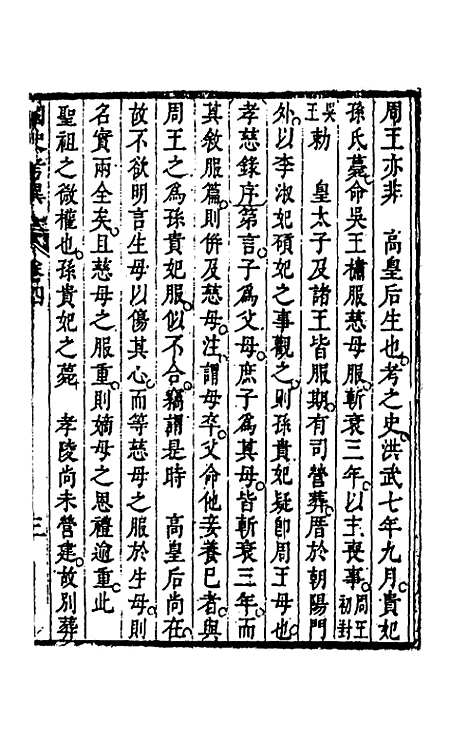 周王亦非　高皇后生也考之史洪武七年九月貴妃
孫氏薨命吳王橚服慈母服斬衰三年以主喪事周王初封
吳王勅　皇太子及諸王皆服期有司營葬厝於朝陽門
外以李淑妃碩妃之事觀之則孫貴妃疑卽周王母也
孝慈錄序第言子為父母庶子為其母皆斬衰三年而
其敘服篇則併及慈母注謂母卒父命他妾養已者與
周王之為孫貴妃服似不合竊謂是時　高皇后尚在
故不欲明言生母以傷其心而等慈母之服於生母則
名實兩全矣且慈母之服重則嫡母之恩禮逾重此
聖祖之微權也孫貴妃之薨　孝陵尚未營建故別葬
國史考異　卷四　三